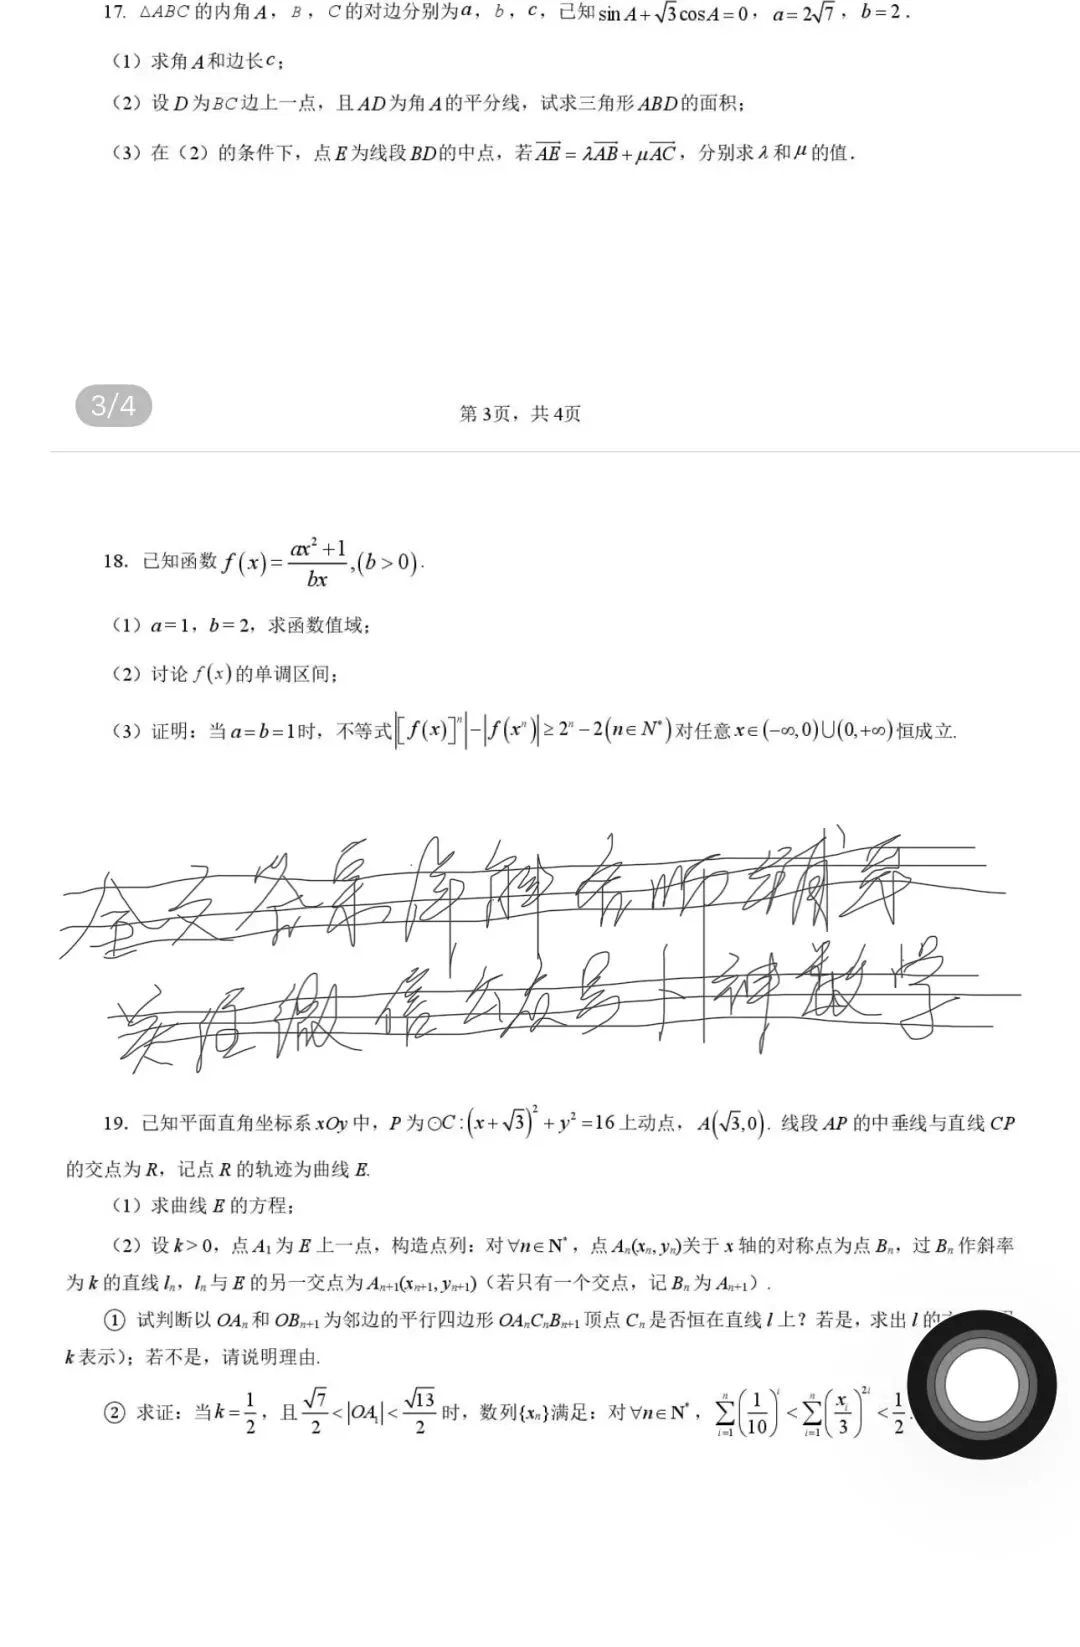 17. △ABC 的内角 A，B，C 的对边分别为 a，b，c，已知 sin A+√3cos A=0，a=2√7，b=2．
（1）求角 A 和边长 c；
（2）设 D 为 BC 边上一点，且 AD 为角 A 的平分线，试求三角形 ABD 的面积；
（3）在（2）的条件下，点 E 为线段 BD 的中点，若 \overline{AE}=λ\overline{AB}+μ\overline{AC}，分别求 λ 和 μ 的值．
3/4
第 3页，共 4页
18. 已知函数 f(x)=\frac{ax²+1}{bx},(b>0).
（1）a=1，b=2，求函数值域；
（2）讨论 f(x) 的单调区间；
（3）证明：当 a=b=1 时，不等式 |[f(x)]ⁿ|-|f(xⁿ)|≥2ⁿ-2(n∈N*) 对任意 x∈(-∞,0)∪(0,+∞) 恒成立.
全文答案详解名师辅导
关注微信公众号 卜神数学
19. 已知平面直角坐标系 xOy 中，P 为 ⊙C:(x+√3)²+y²=16 上动点，A(√3,0). 线段 AP 的中垂线与直线 CP
的交点为 R，记点 R 的轨迹为曲线 E.
（1）求曲线 E 的方程；
（2）设 k>0，点 A₁ 为 E 上一点，构造点列：对 ∀n∈N*，点 Aₙ(xₙ,yₙ)关于 x 轴的对称点为点 Bₙ，过 Bₙ 作斜率
为 k 的直线 lₙ，lₙ 与 E 的另一交点为 Aₙ₊₁(xₙ₊₁,yₙ₊₁)（若只有一个交点，记 Bₙ 为 Aₙ₊₁）.
① 试判断以 OAₙ 和 OBₙ₊₁ 为邻边的平行四边形 OAₙCₙBₙ₊₁ 顶点 Cₙ 是否恒在直线 l 上？若是，求出 l 的
k 表示）；若不是，请说明理由.
② 求证：当 k=\frac{1}{2}，且 \frac{√7}{2}<|OA₁|<\frac{√13}{2} 时，数列{xₙ}满足：对 ∀n∈N*，\sum_{i=1}^{n}(\frac{1}{10})^{i}<\sum_{i=1}^{n}(\frac{x_i}{3})^{2i}<\frac{1}{2}.